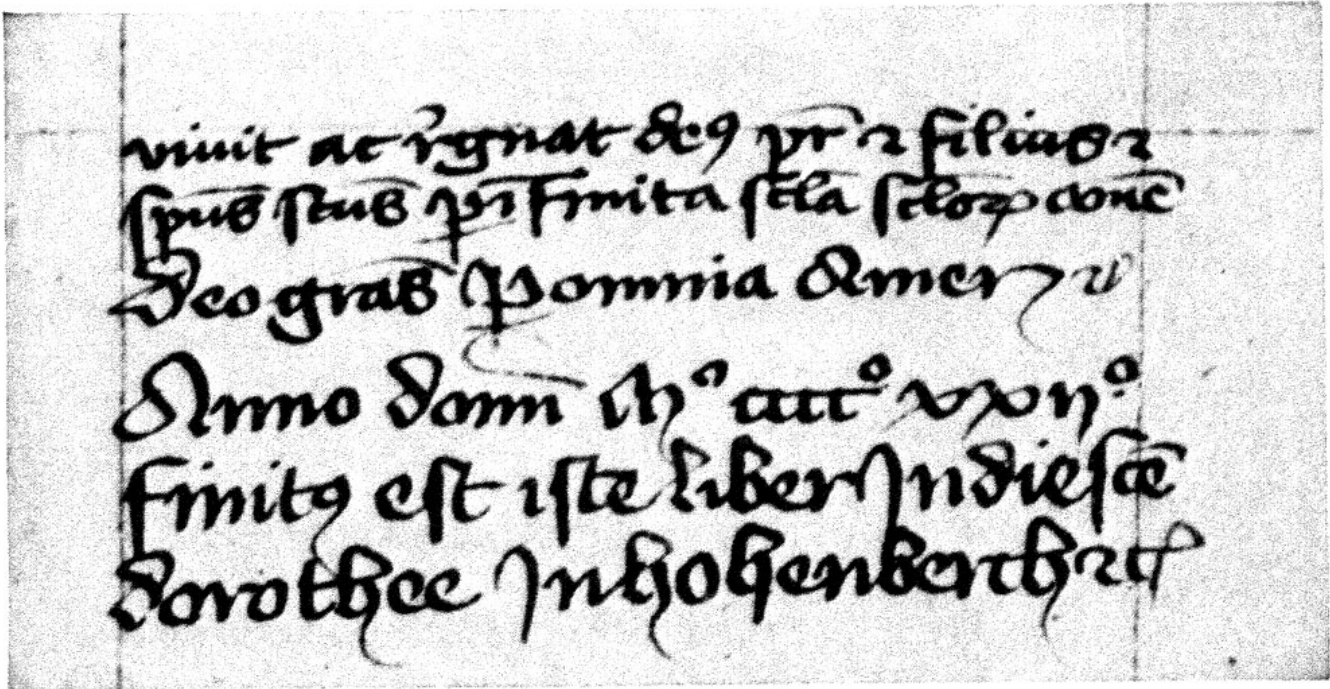 vivit ac rͥgnat deꝯ pr̄ ⁊ filius ⁊
spūs sc̄us ꝑ īfinita scl̄a scl̄oꝝ
deo gras̄ ꝑ omnia Amen
Anno domī Mᵒ ccccᵒ xxijᵒ
finitꝯ est iste liber In die sc̄e
dorothee In hohenberch ⁊c